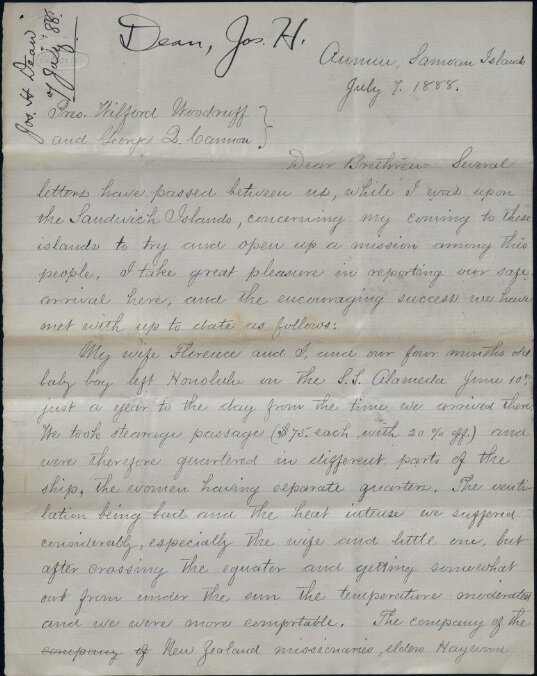 Jos. H Dean
7 July 88.
Dean, Jos. H.
Aunuu, Samoan Islands
July 7. 1888.
Pres. Wilford Woodruff
and George Q. Cannon
Dear Brethren Several
letters have passed between us, while I was upon
the Sandwich Islands, concerning my coming to these
islands to try and open up a mission among this
people. I take great pleasure in reporting our safe
arrival here, and the encouraging success we have
met with up to date as follows:
My wife Florence and I, and our four months old
baby boy left Honolulu on the S.S. Alameda June 10th,
just a year to the day from the time we arrived there
We took stearage passage ($75 each with 20 % off.) and
were therefore quartered in different parts of the
ship, the women having separate quarters. The venti
lation being bad and the heat intense we suffered
considerably, especially the wife and little one, but
after crossing the equater and getting somewhat
out from under the sun the temperature moderated
and we were more comfortable. The company of the
company of New Zealand missionaries, elders Haywood